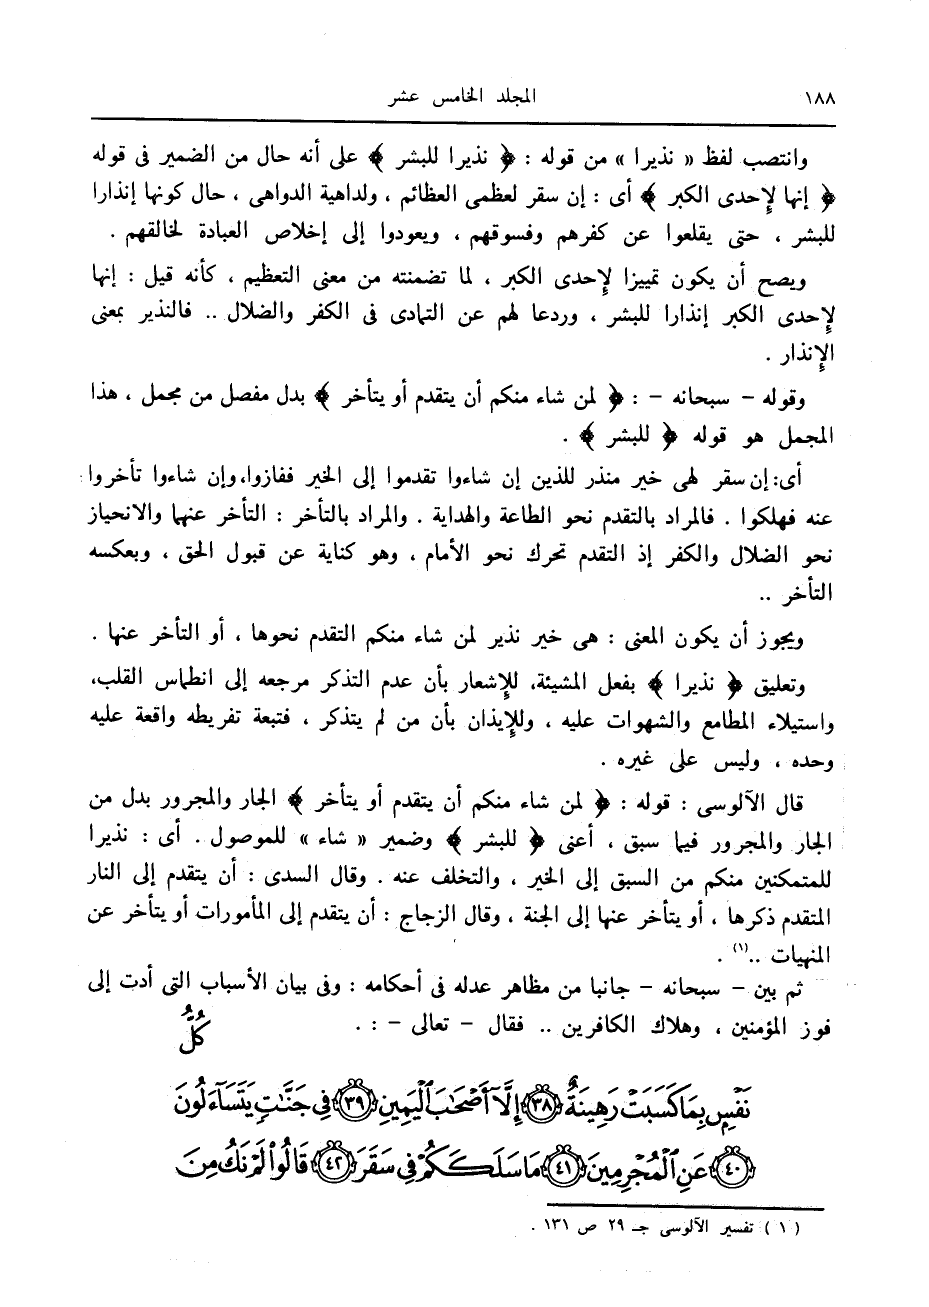 ١٨٨ المجلد الخامس عشر
وانتصب لفظ « نذيرا » من قوله : ﴿ نذيرا للبشر ﴾ على أنه حال من الضمير فى قوله
﴿ إنها لإحدى الكبر ﴾ أى : إن سقر لعظمى العظائم ، ولداهية الدواهى ، حال كونها إنذارا
للبشر ، حتى يقلعوا عن كفرهم وفسوقهم ، ويعودوا إلى إخلاص العبادة لخالقهم .
ويصح أن يكون تمييزا لإحدى الكبر ، لما تضمنته من معنى التعظيم ، كأنه قيل : إنها
لإحدى الكبر إنذارا للبشر ، وردعا لهم عن التمادى فى الكفر والضلال .. فالنذير بمعنى
الإنذار .
وقوله – سبحانه – : ﴿ لمن شاء منكم أن يتقدم أو يتأخر ﴾ بدل مفصل من مجمل ، هذا
المجمل هو قوله ﴿ للبشر ﴾ .
أى: إن سقر لهى خير منذر للذين إن شاءوا تقدموا إلى الخير ففازوا، وإن شاءوا تأخروا
عنه فهلكوا . فالمراد بالتقدم نحو الطاعة والهداية . والمراد بالتأخر : التأخر عنهما والانحياز
نحو الضلال والكفر إذ التقدم تحرك نحو الأمام ، وهو كناية عن قبول الحق ، وبعكسه
التأخر ..
ويجوز أن يكون المعنى : هى خير نذير لمن شاء منكم التقدم نحوها ، أو التأخر عنها .
وتعليق ﴿ نذيرا ﴾ بفعل المشيئة، للإشعار بأن عدم التذكر مرجعه إلى انطماس القلب،
واستيلاء المطامع والشهوات عليه ، وللإيذان بأن من لم يتذكر ، فتبعة تفريطه واقعة عليه
وحده ، وليس على غيره .
قال الآلوسى : قوله : ﴿ لمن شاء منكم أن يتقدم أو يتأخر ﴾ الجار والمجرور بدل من
الجار والمجرور فيما سبق ، أعنى ﴿ للبشر ﴾ وضمير « شاء » للموصول . أى : نذيرا
للمتمكنين منكم من السبق إلى الخير ، والتخلف عنه . وقال السدى : أن يتقدم إلى النار
المتقدم ذكرها ، أو يتأخر عنها إلى الجنة ، وقال الزجاج : أن يتقدم إلى المأمورات أو يتأخر عن
المنهيات ..(١) .
ثم بين – سبحانه – جانبا من مظاهر عدله فى أحكامه : وفى بيان الأسباب التى أدت إلى
فوز المؤمنين ، وهلاك الكافرين .. فقال – تعالى – : .
كُلُّ
نَفْسٍ بِمَا كَسَبَتْ رَهِينَةٌ ﴿٣٨﴾ إِلَّا أَصْحَابَ الْيَمِينِ ﴿٣٩﴾ فِي جَنَّاتٍ يَتَسَاءَلُونَ
﴿٤٠﴾ عَنِ الْمُجْرِمِينَ ﴿٤١﴾ مَا سَلَكَكُمْ فِي سَقَرَ ﴿٤٢﴾ قَالُوا لَمْ نَكُ مِنَ
( ١ ) تفسير الآلوسى جـ ٢٩ ص ١٣١ .